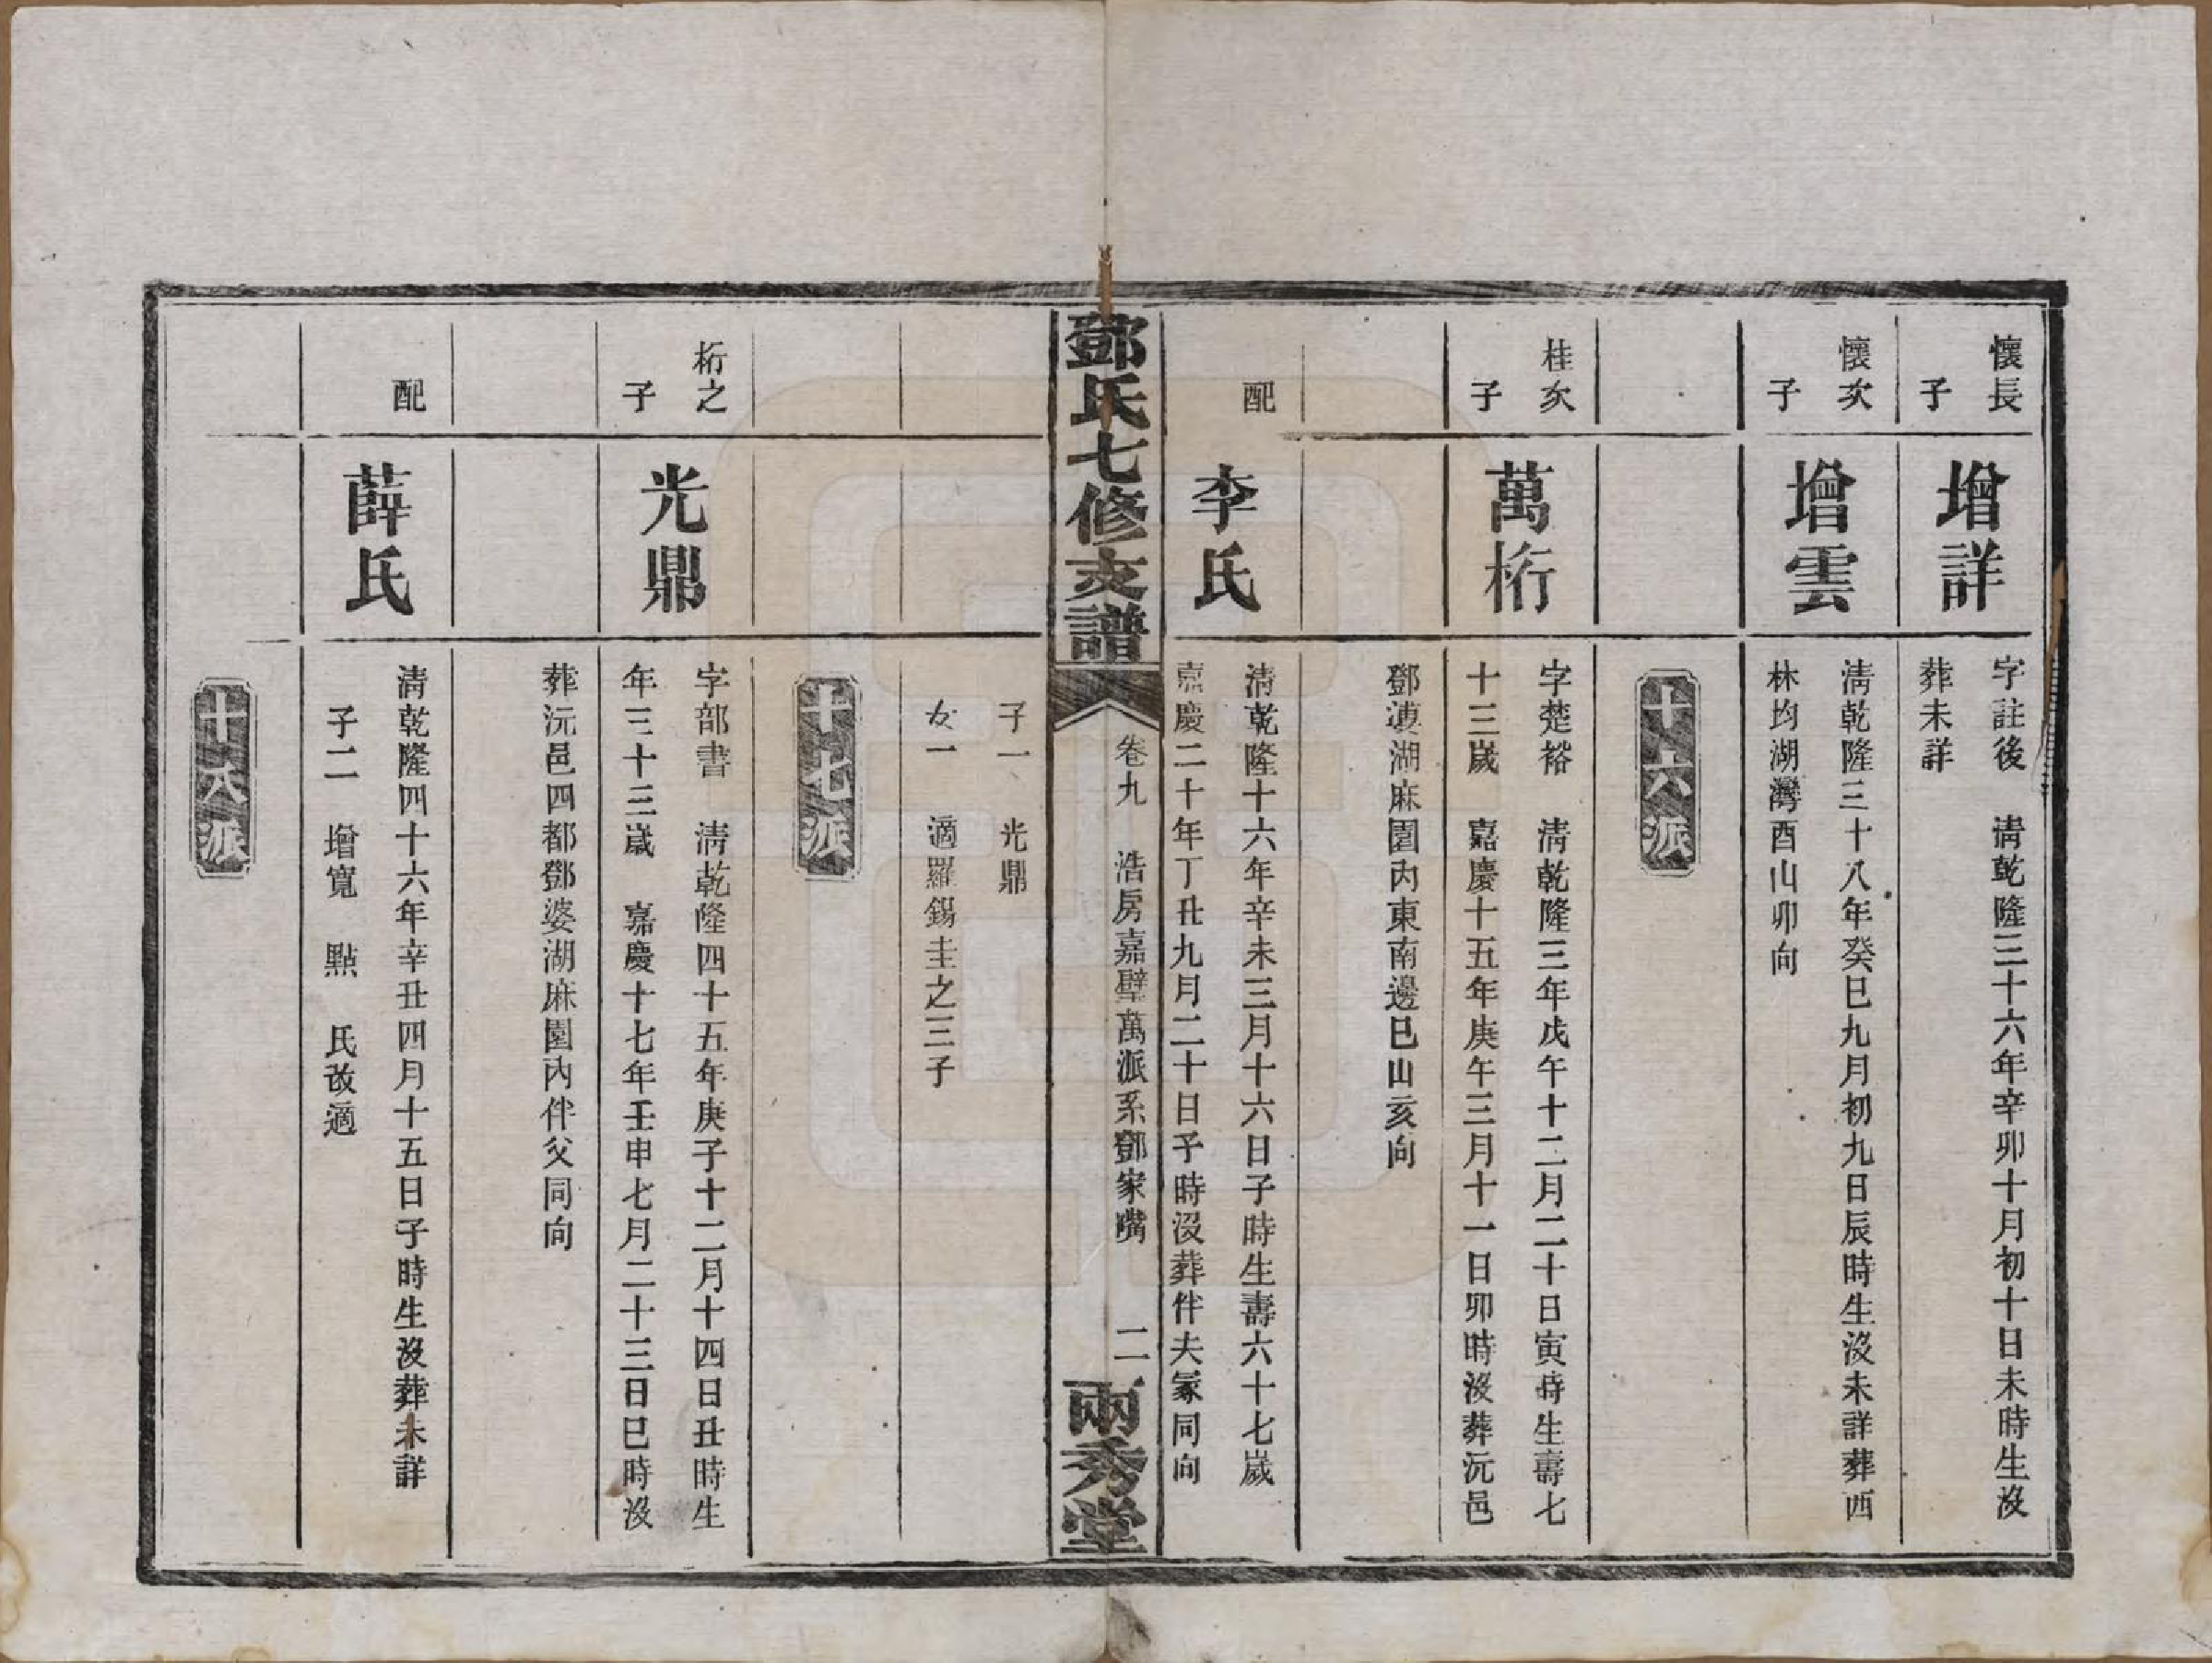 懷長
子
增詳
字註後　淸乾隆三十六年辛卯十月初十日未時生沒
葬未詳
懷次
子
增雲
淸乾隆三十八年癸巳九月初九日辰時生沒未詳葬西
林均湖灣酉山卯向
十六派
桂次
子
萬桁
字楚裕　淸乾隆三年戊午十二月二十日寅時生壽七
十三歲　嘉慶十五年庚午三月十一日卯時沒葬沅邑
鄧婆湖麻園內東南邊巳山亥向
配
李氏
淸乾隆十六年辛未三月十六日子時生壽六十七歲
嘉慶二十年丁丑九月二十日子時沒葬伴夫冢同向
鄧氏七修支譜
卷九　浩房嘉壁萬派系鄧家嘴　二
兩秀堂
子一　光鼎
女一　適羅錫圭之三子
十七派
桁之
子
光鼎
字部書　淸乾隆四十五年庚子十二月十四日丑時生
年三十三歲　嘉慶十七年壬申七月二十三日巳時沒
葬沅邑四都鄧婆湖麻園內伴父同向
配
薛氏
淸乾隆四十六年辛丑四月十五日子時生沒葬未詳
子二　增寬　點　氏改適
十八派